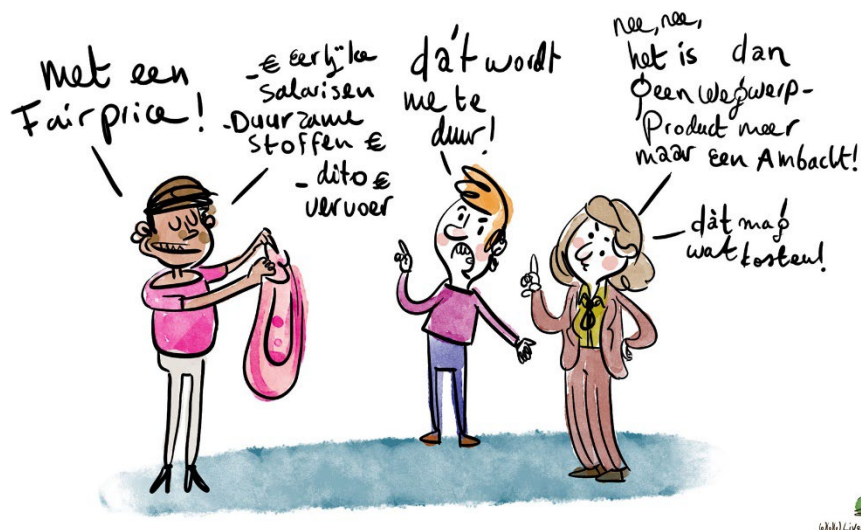 met een
Fairprice!
- € eerlijke
salarissen
- Duurzame
stoffen €
- dito €
vervoer
dàt wordt
me te
duur!
nee, nee,
het is dan
geen wegwerp-
Product meer
maar een Ambacht!
dàt mag
wat kosten!